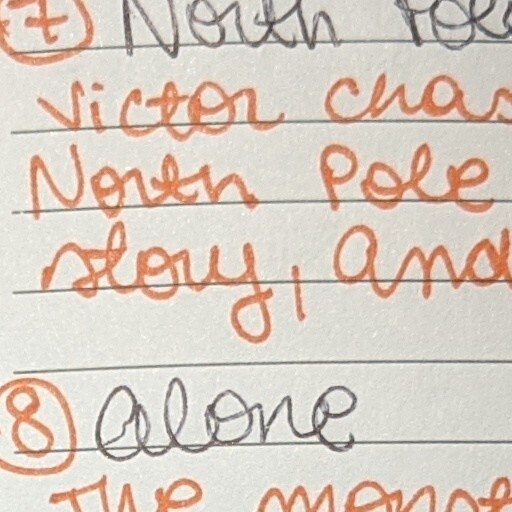 7 North Pole
Victor chas
North Pole
story, and
8 alone
The monst